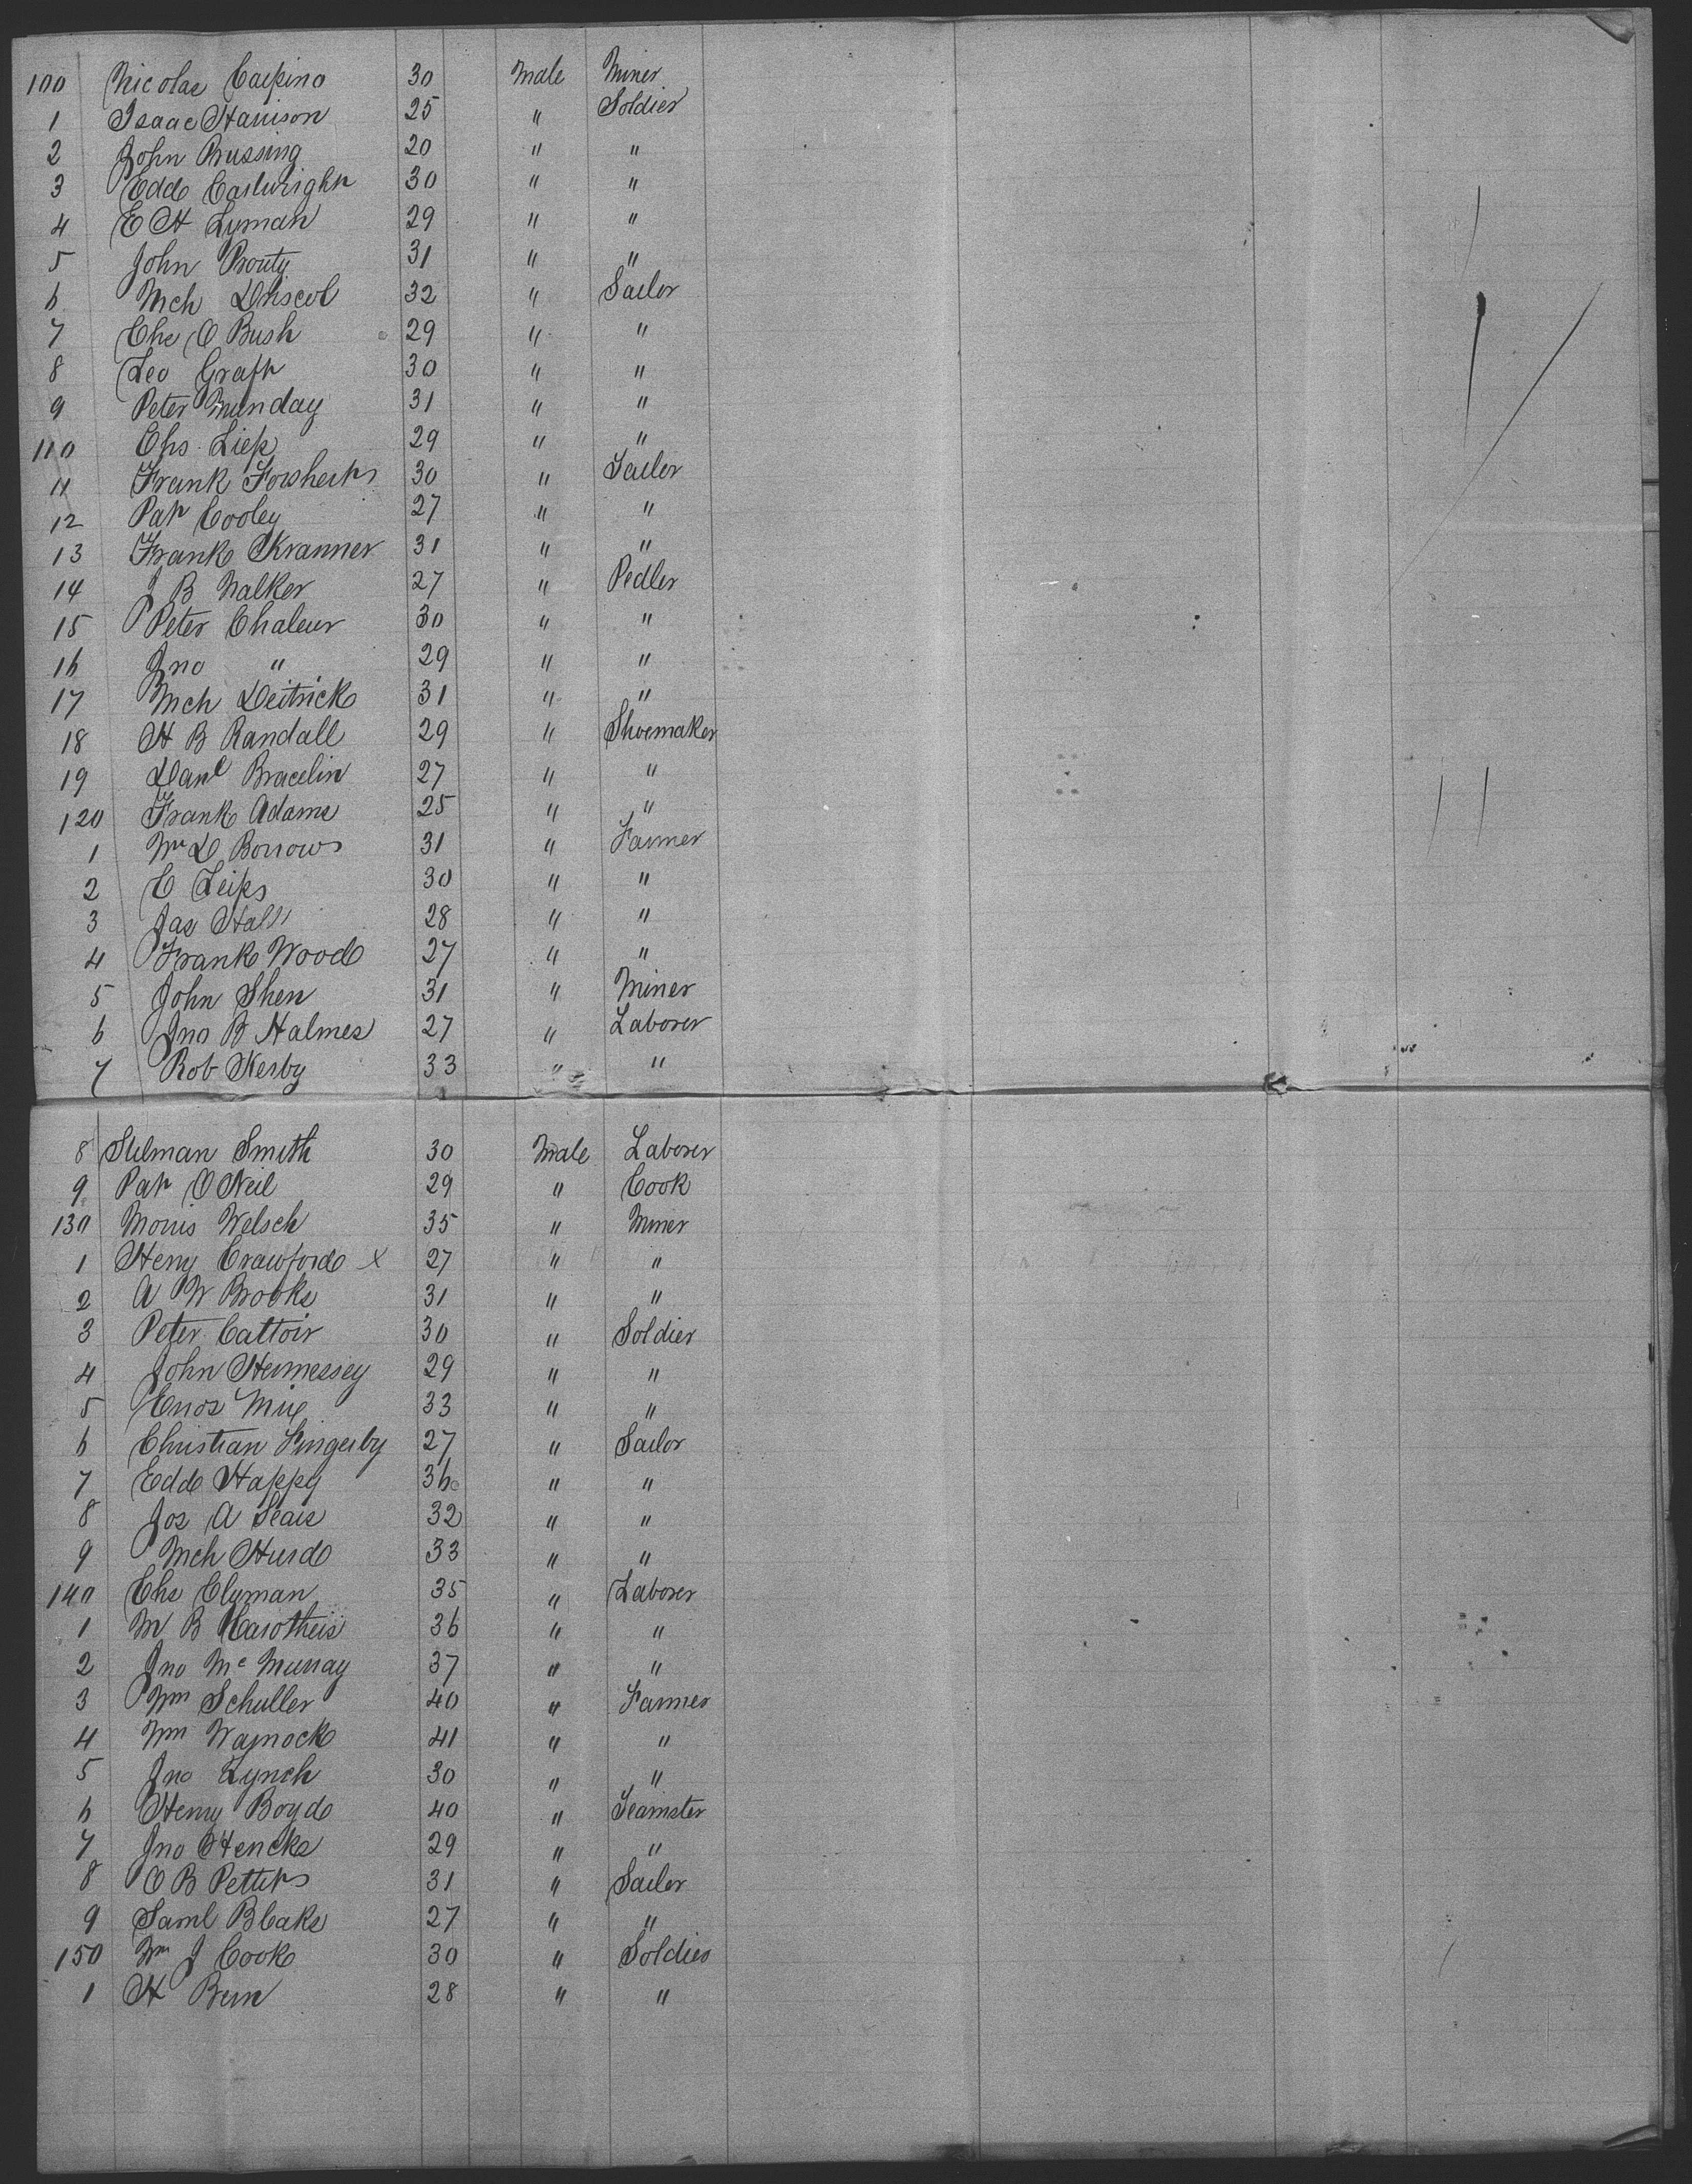 100 Nicolas Caspino 30 Male Miner
1 Isaac Harrison 25 " Soldier
2 John Brussing 20 " "
3 Edd Cartwright 30 " "
4 E H Lyman 29 " "
5 John Prouty 31 " "
6 Mch Driscol 32 " Sailor
7 Chs O Bush 29 " "
8 Leo Graft 30 " "
9 Peter Munday 31 " "
110 Chs Liep 29 " "
11 Frank Forsheits 30 " Tailor
12 Pat Cooley 27 " "
13 Frank Kranner 31 " "
14 J B Walker 27 " Pedler
15 Peter Chaleur 30 " "
16 Jno " 29 " "
17 Mch Deitrick 31 " "
18 H B Randall 29 " Shoemaker
19 Danl Bracelin 27 " "
120 Frank Adams 25 " "
1 Wm D Borrows 31 " Farmer
2 C Leips 30 " "
3 Jas Hall 28 " "
4 Frank Wood 27 " "
5 John Shen 31 " Miner
6 Jno B Halmes 27 " Laborer
7 Rob Kerby 33 " "
8 Stilman Smith 30 Male Laborer
9 Pat O Neil 29 " Cook
130 Morris Welsch 35 " Miner
1 Henry Crawford x 27 " "
2 A W Brooks 31 " "
3 Peter Cattoir 30 " Soldier
4 John Hennessey 29 " "
5 Enos Mix 33 " "
6 Christian Fingerby 27 " Sailor
7 Edd Happy 36 " "
8 Jos A Sears 32 " "
9 Mch Hurd 33 " "
140 Chs Clyman 35 " Laborer
1 M B Carothers 36 " "
2 Jno Mc Murray 37 " "
3 Wm Schuller 40 " Farmer
4 Wm Warnock 41 " "
5 Jno Lynch 30 " "
6 Henry Boyd 40 " Teamster
7 Jno Hencks 29 " "
8 O B Pettits 31 " Sailor
9 Saml Blake 27 " "
150 Wm J Cook 30 " Soldier
1 H Bern 28 " "